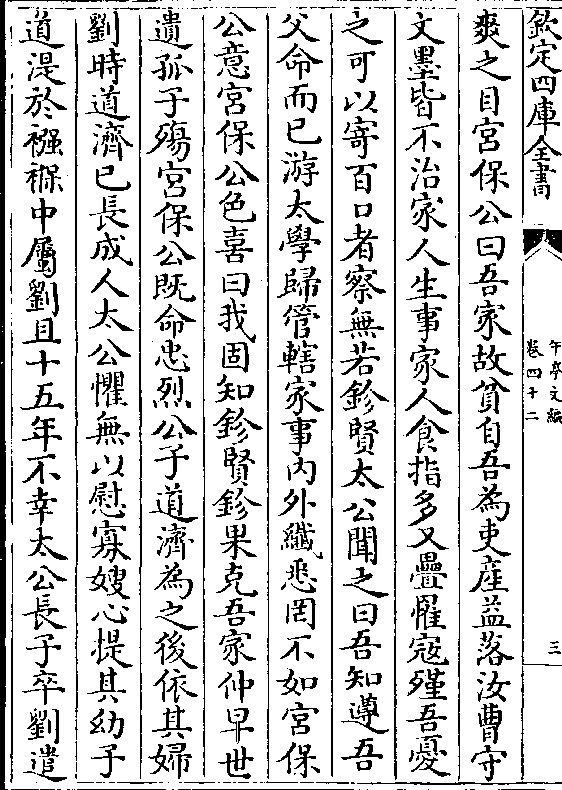 欽定四庫全書
午亭文編
卷四十二
三
爽之目宮保公曰吾家故貧自吾為吏産益落汝曹守
文墨皆不治家人生事家人食指多又疊罹寇殣吾憂
之可以寄百口者察無若鉁賢太公聞之曰吾知遵吾
父命而已游太學歸管轄家事内外纎悉罔不如宮保
公意宮保公色喜曰我固知鉁賢鉁果克吾家仲早世
遺孤子殤宮保公既命忠烈公子道濟為之後依其婦
劉時道濟已長成人太公懼無以慰寡嫂心提其幼子
道湜於襁褓中屬劉且十五年不幸太公長子卒劉遣